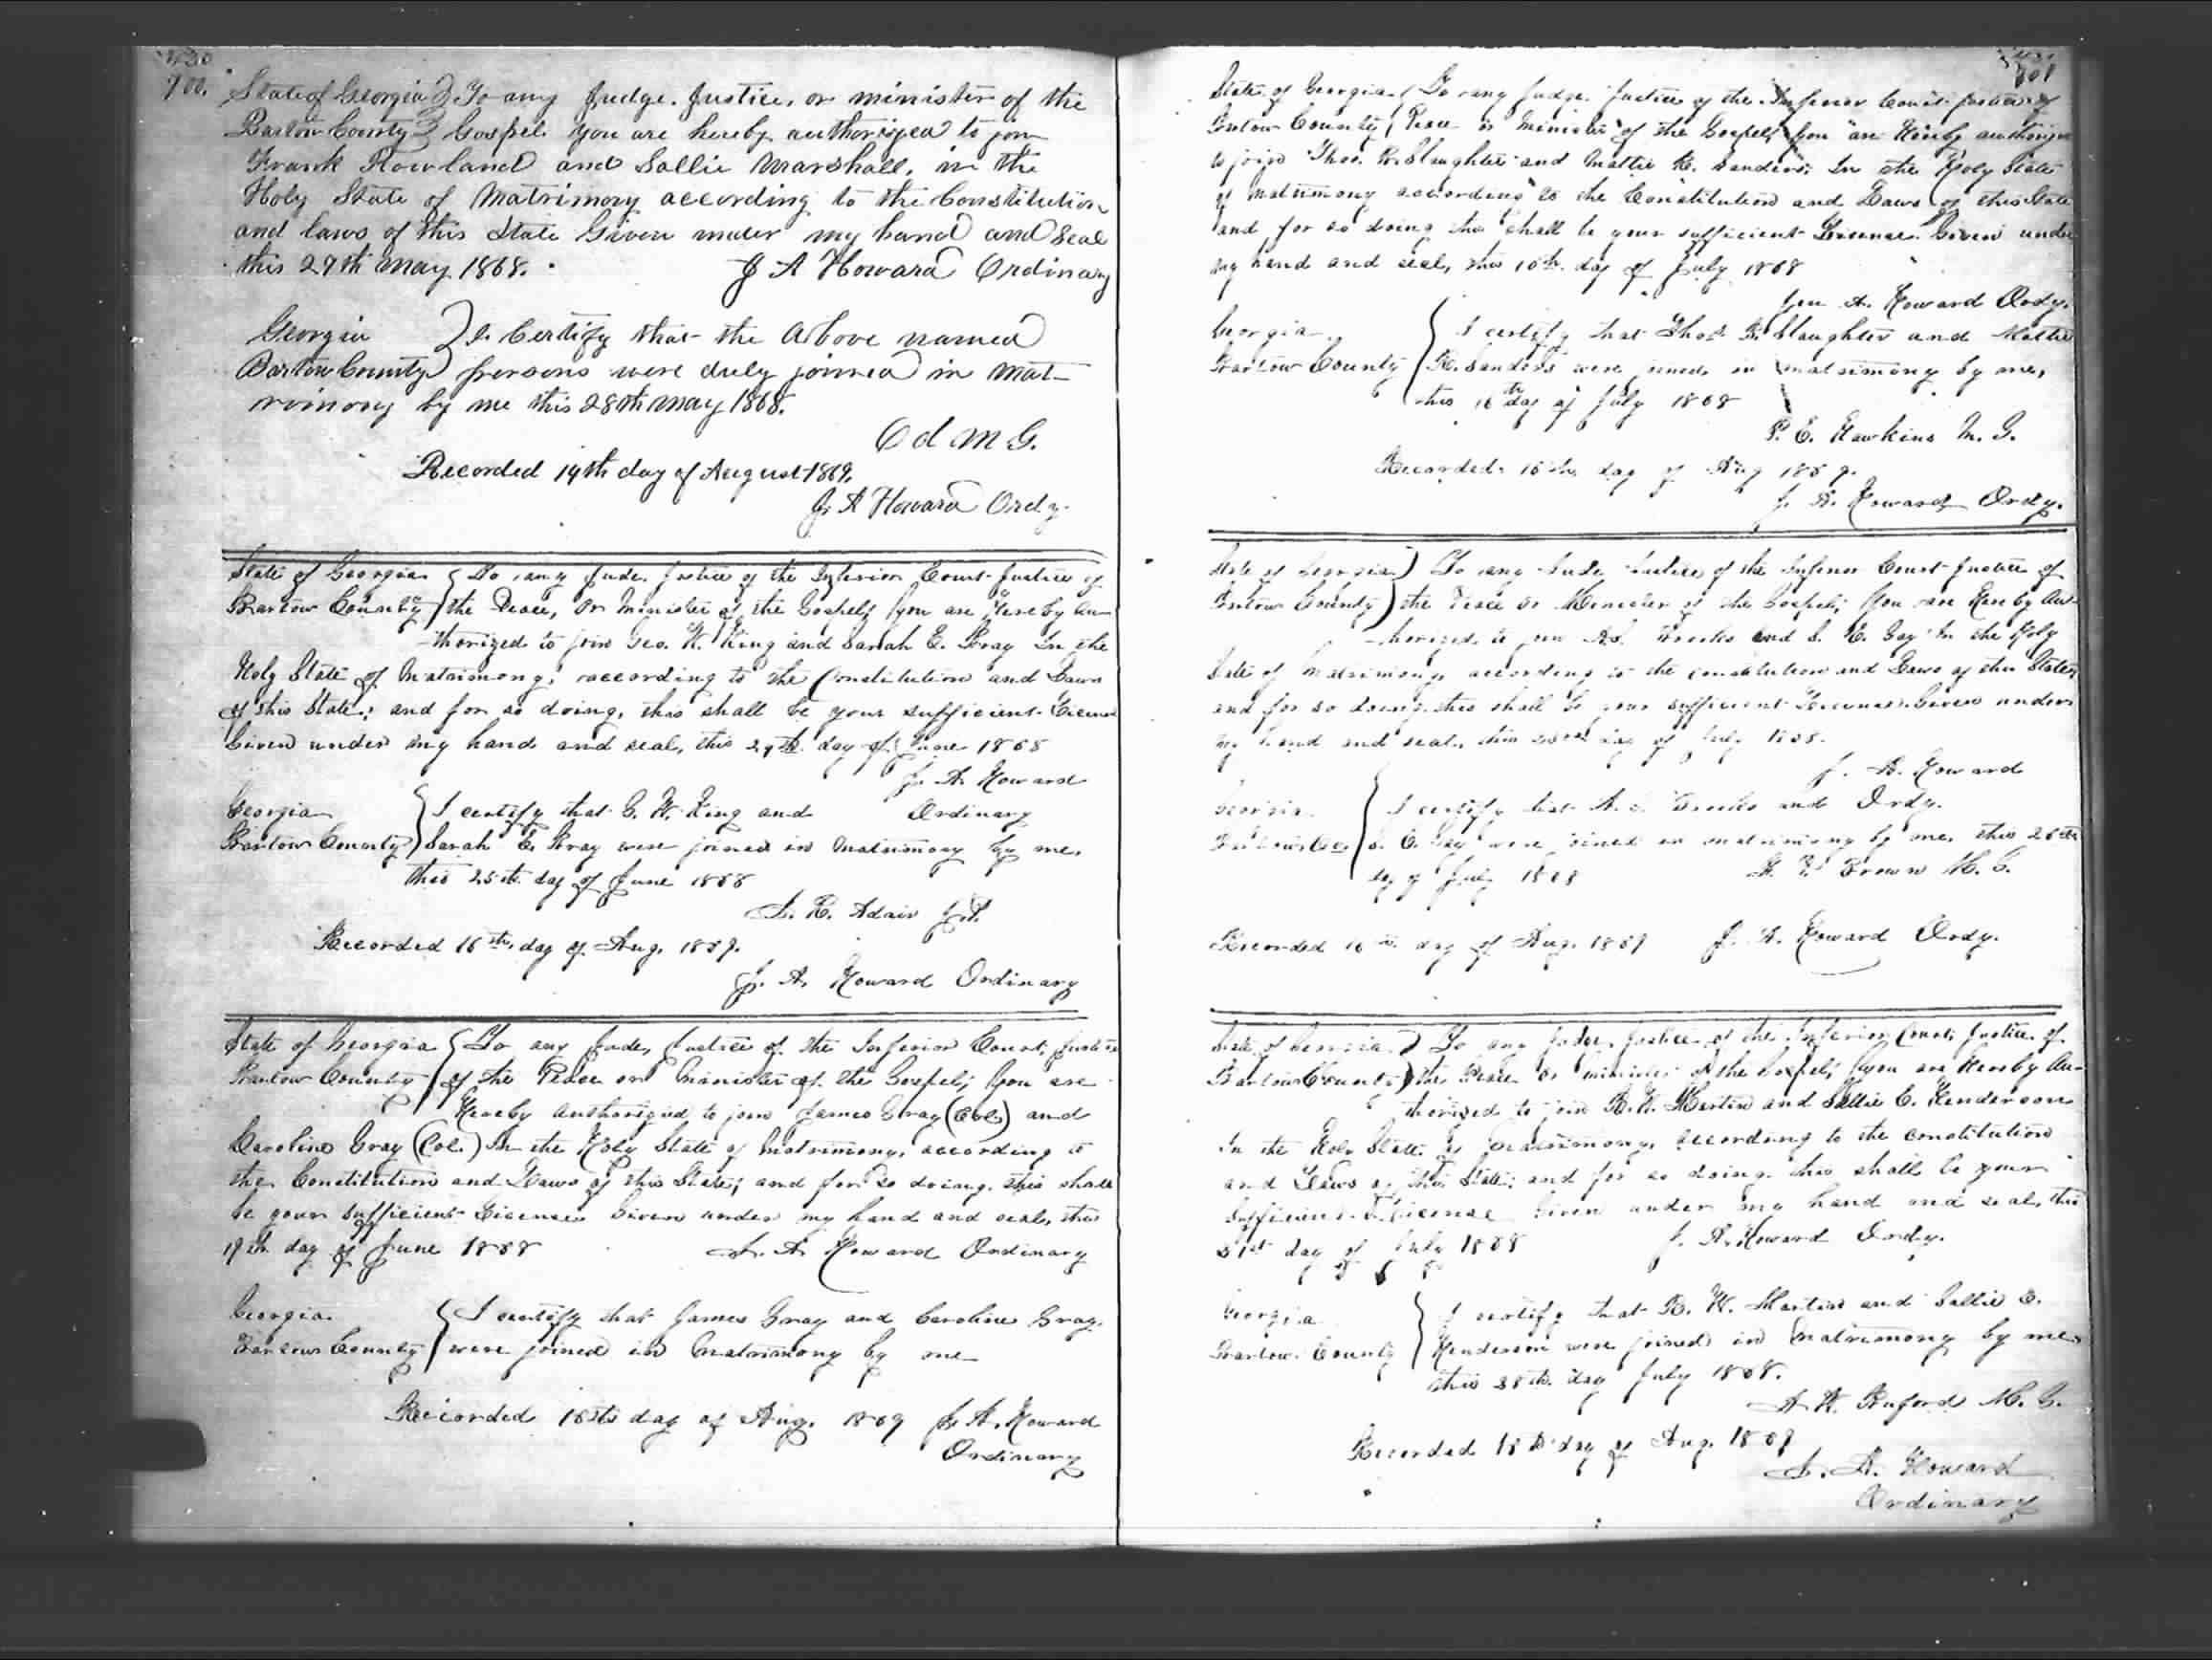 430
700.
State of Georgia } To any Judge. Justice, or minister of the
Bartow County } Gospel. You are hereby authorized to join
Frank Rowland and Sallie Marshall, in the
Holy State of Matrimony according to the Constitution
and laws of this State Given under my hand and Seal
this 27th May 1868.
J A Howard Ordinary
Georgia } I Certify that the Above named
Bartow County } persons were duly joined in Mat-
rimony by me this 28th May 1868.
C d M G.
Recorded 14th day of August 1869.
J. A Howard Ordy.
State of Georgia { To any Jude, Justice of the Inferior Court Justice of
Bartow County { the Peace, or Minister of the Gospel; You are Hereby Au-
thorized to join Geo. W. King and Sarah E. Bray In the
Holy State of Matrimony, according to the Constitution and Laws
of this State; and for so doing, this shall be your sufficient License
Given under my hand and seal, this 24th day of June 1868
J. A. Howard
Ordinary
Georgia { I certify that G. W. King and
Bartow County { Sarah E. Bray were joined in Matrimony by me,
this 25th day of June 1868
S. R. Adair J.P.
Recorded 16th day of Aug. 1869.
J. A. Howard Ordinary
State of Georgia { To any Jude, Justice of the Inferior Court, Justice
Bartow County { of the Peace or Minister of the Gospel; You are
Hereby Authorized to join James Gray (Col.) and
Caroline Gray (Col.) In the Holy State of Matrimony, according to
the Constitution and Laws of this State; and for so doing. this shall
be your sufficient License Given under my hand and seal, this
19th day of June 1868
J. A. Howard Ordinary
Georgia { I certify that James Gray and Caroline Gray.
Bartow County { were joined in Matrimony by me
Recorded 16th day of Aug. 1869 J. A. Howard
Ordinary
701
State of Georgia { To any Judge Justice of the Inferior Court Justice of
Bartow County { Peace or Minister of the Gospel; You are Hereby authorize
to join Thos. R. Slaughter and Mattie R. Sanders; In the Holy State
of Matrimony according to the Constitution and Laws of this State
and for so doing this shall be your sufficient License. Given under
my hand and seal, this 15th day of July 1868
Jno A. Howard Ordy.
Georgia { I certify that Thos R. Slaughter and Mattie
Bartow County { R. Sanders were joined in matrimony by me,
this 16th day of July 1868
P. E. Hawkins M. G.
Recorded 16th day of Aug 1869.
J. A. Howard Ordy.
State of Georgia ) To any Jude Justice of the Inferior Court Justice of
Bartow County ) the Peace or Minister of the Gospel; You are Hereby Au-
thorized to join A. S. Brooks and S. E. Gay In the Holy
State of Matrimony according to the constitution and Laws of this State;
and for so doing this shall be your sufficient License. Given under
my hand and seal, this day of July 1868.
J. A. Howard
Ordy.
Georgia { I certify that A. S. Brooks and
{ S. E. Gay were joined in matrimony by me this 26th
day of July 1868
Brown M. G.
Recorded 16th day of Aug. 1869 J. A. Howard Ordy.
State of Georgia ) To any Jude, Justice of the Inferior Court, Justice of
Bartow County ) the Peace or Minister of the Gospel; You are Hereby Au-
thorized to join R. W. Martin and Sallie E. Henderson
In the Holy State of Matrimony, according to the constitution
and Laws of this State; and for so doing this shall be your
sufficient License Given under my hand and seal, this
21st day of July 1868
J. A. Howard Ordy.
Georgia { I certify that R. W. Martin and Sallie E.
Bartow County { Henderson were joined in Matrimony by me,
this 28th day July 1868.
A. W. Buford M. G.
Recorded 16th day of Aug. 1869
J. A. Howard
Ordinary